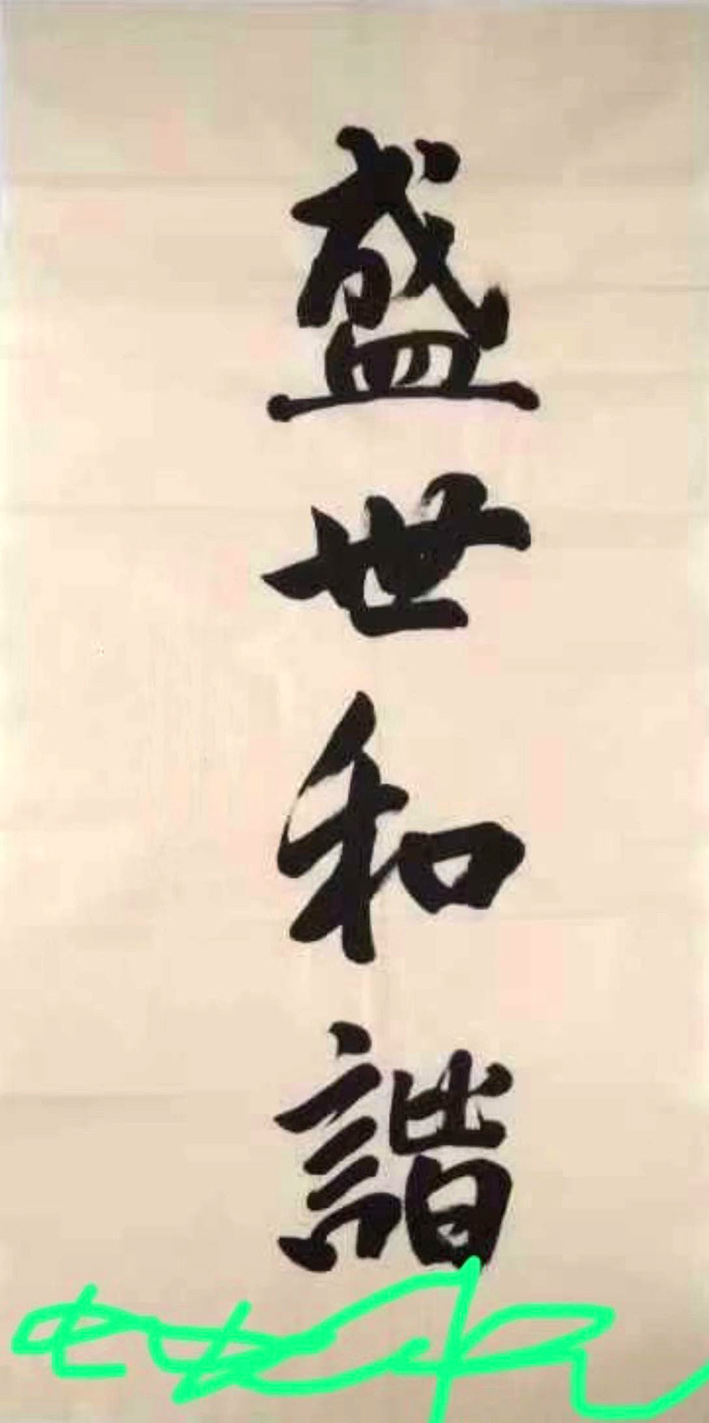 盛世和諧